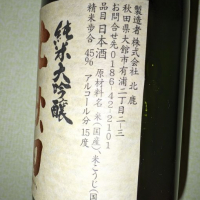 製造者 株式会社 北鹿
秋田県大館市有浦二丁目2-3
お問合せ先0186-42-2101
品目 日本酒 原材料名 米(国産)、米こうじ(国
精米歩合 45% アルコール分 15度
純米大吟醸